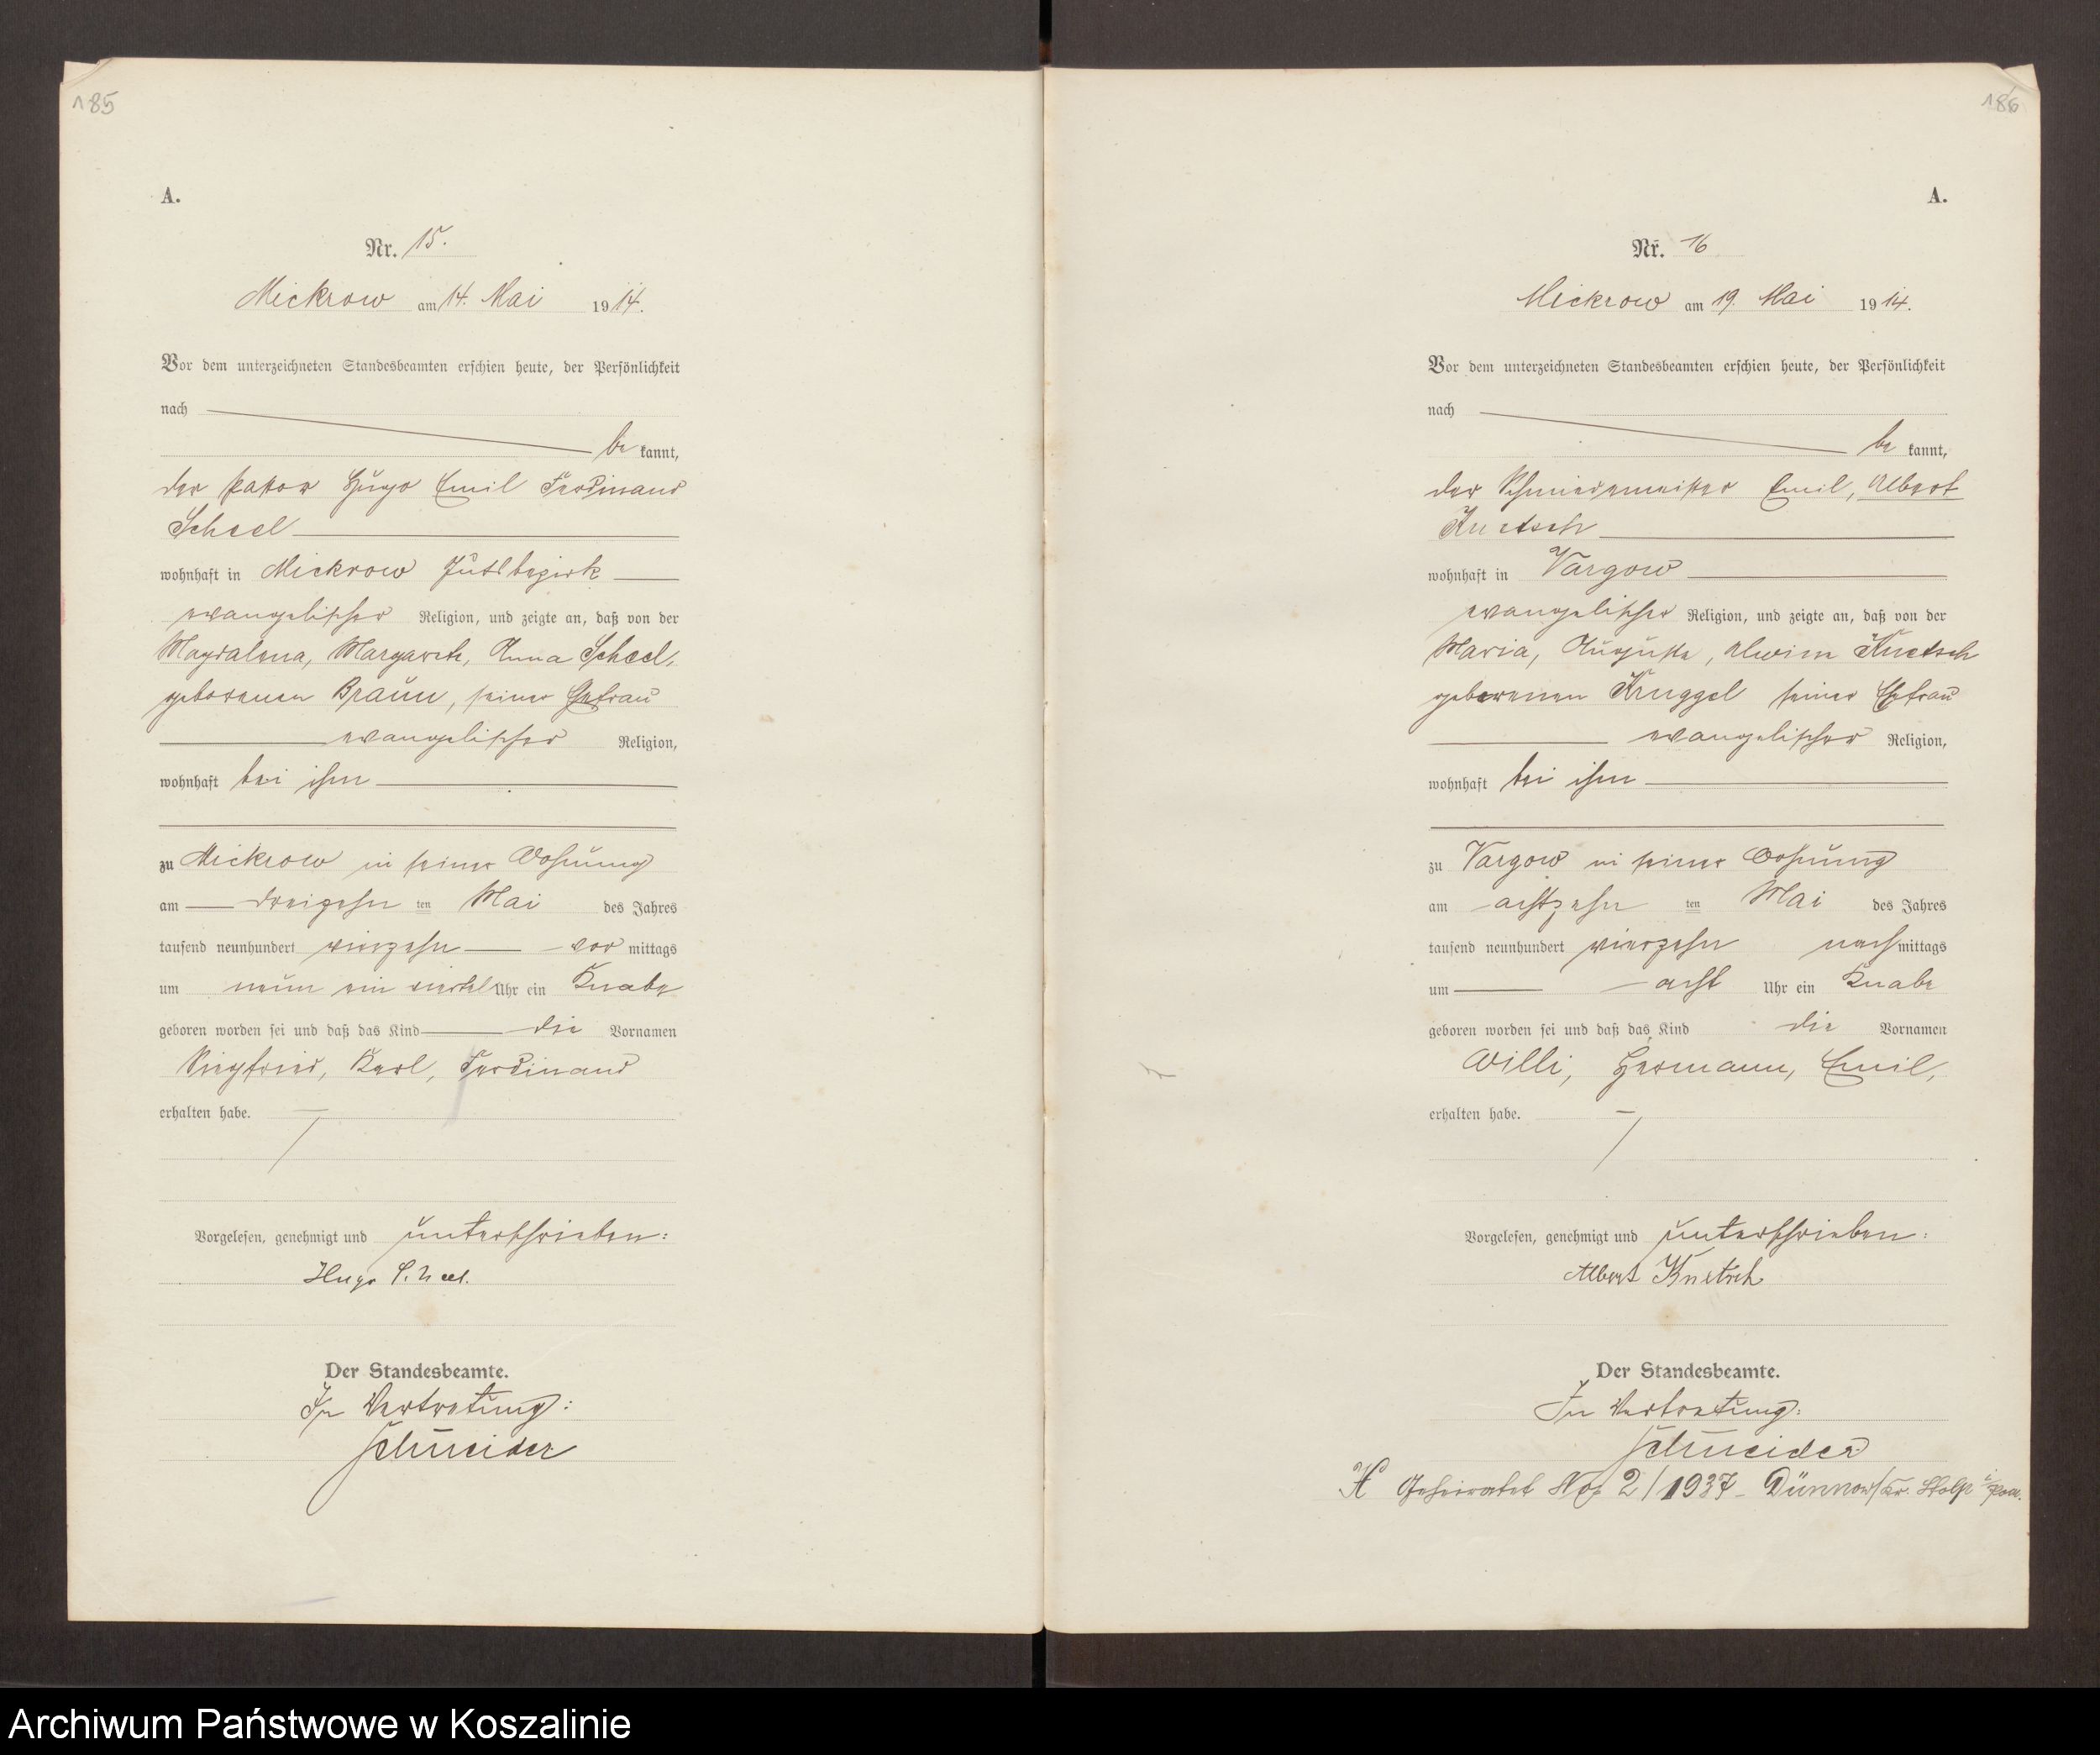 185
A.
Nr. 15.
Mickrow am 14. Mai 1914.
Vor dem unterzeichneten Standesbeamten erschien heute, der Persönlichkeit
nach
be kannt,
der Pastor Hugo Emil Ferdinand
Scheel
wohnhaft in Mickrow Gutsbezirk
evangelischer Religion, und zeigte an, daß von der
Magdalena, Margarete, Anna Scheel,
geborenen Braun, seiner Ehefrau
evangelischer Religion,
wohnhaft bei ihm
zu Mickrow in seiner Wohnung
am dreizehn ten Mai des Jahres
tausend neunhundert vierzehn vor mittags
um neun ein viertel Uhr ein Knabe
geboren worden sei und daß das Kind die Vornamen
Siegfried, Karl, Ferdinand
erhalten habe.
Vorgelesen, genehmigt und unterschrieben:
Hugo Scheel.
Der Standesbeamte.
In Vertretung:
Schneider
186
A.
Nr. 16
Mickrow am 19. Mai 1914.
Vor dem unterzeichneten Standesbeamten erschien heute, der Persönlichkeit
nach
be kannt,
der Schmiedemeister Emil, Albert
Knetsch
wohnhaft in Vargow
evangelischer Religion, und zeigte an, daß von der
Maria, Auguste, Alwine Knetsch
geborenen Kruggel seiner Ehefrau
evangelischer Religion,
wohnhaft bei ihm
zu Vargow in seiner Wohnung
am achtzehn ten Mai des Jahres
tausend neunhundert vierzehn nach mittags
um acht Uhr ein Knabe
geboren worden sei und daß das Kind die Vornamen
Willi, Hermann, Emil,
erhalten habe.
Vorgelesen, genehmigt und unterschrieben:
Albert Knetsch
Der Standesbeamte.
In Vertretung:
Schneider
Geheiratet No. 2/1937 - Dünnow/Kr. Stolp i/Pom.
Archiwum Państwowe w Koszalinie